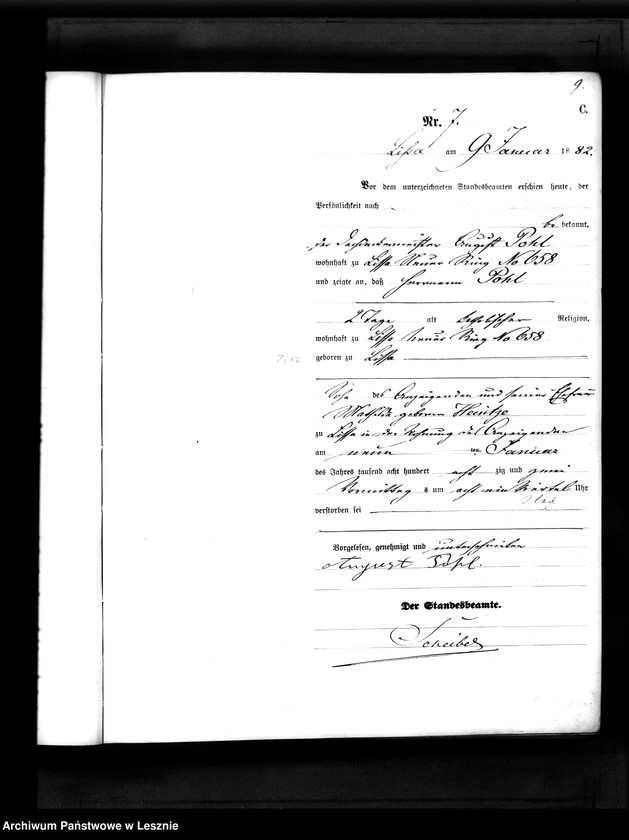 9.
C.
Nr. 7.
Lissa am 9 Januar 1882.
Vor dem unterzeichneten Standesbeamten erschien heute, der
Persönlichkeit nach
be bekannt,
der Dachdeckermeister August Pohl
wohnhaft zu Lissa Neuer Ring No 658
und zeigte an, daß Herrmann Pohl
2 Tage alt katholischer Religion,
wohnhaft zu Lissa Neuer Ring No 658
geboren zu Lissa
Sohn des Anzeigenden und seiner Ehefrau
Mathilde geborene Heintze
zu Lissa in der Wohnung des Anzeigenden
am neun ten Januar
des Jahres tausend acht hundert acht zig und zwei
Vormittag s um acht ein Viertel Uhr
verstorben sei
Vorgelesen, genehmigt und unterschrieben
August Pohl.
Der Standesbeamte.
Scheibel
Archiwum Państwowe w Lesznie